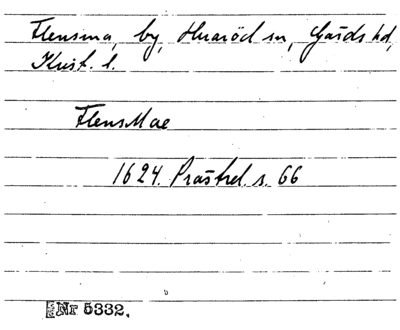 Flensma, by, Huaröd sn, Gärds hd,
Krist. l.
FlensMae
1624. Prästrel. s. 66
Nr 5332.